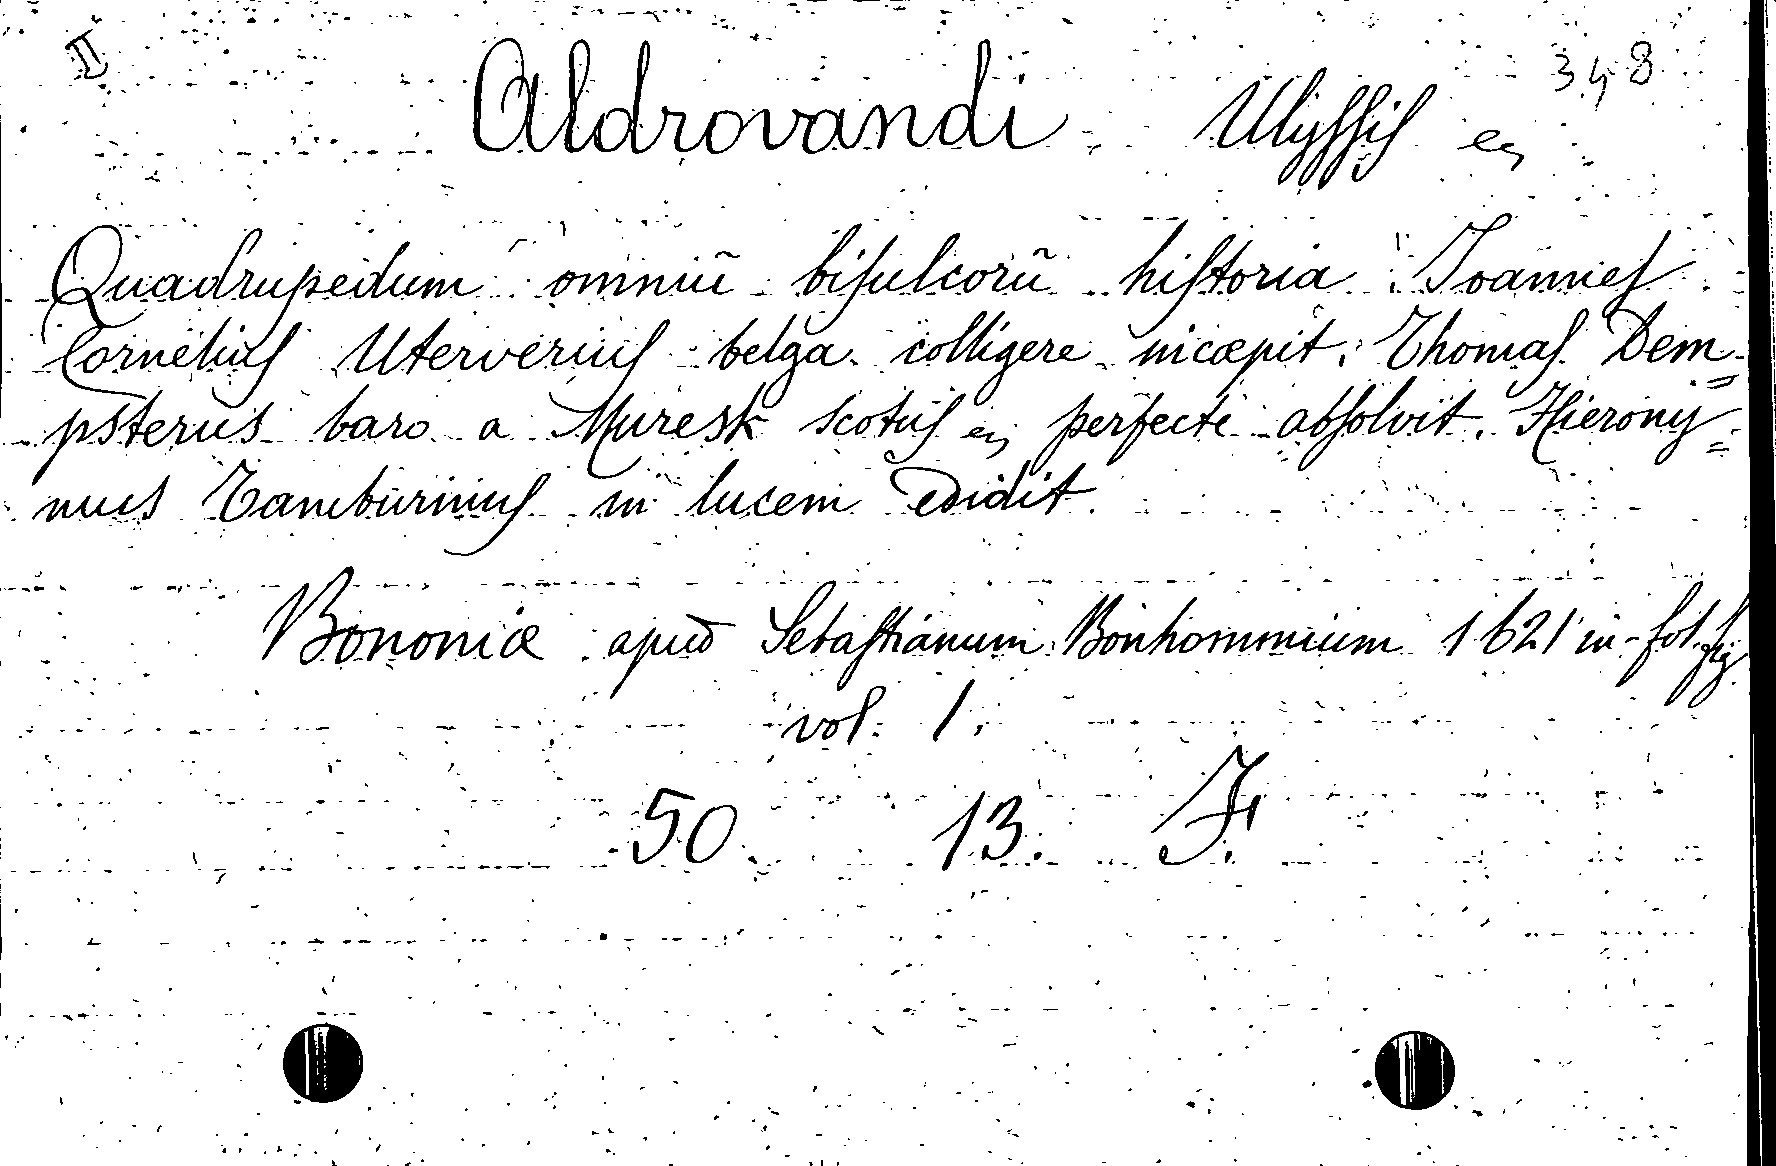 II
348
Aldrovandi Ulyssis en
Quadrupedum omniū bisulcorū historia Joannes
Cornelius Uterverius belga colligere incæpit. Thomas Dem=
psterus baro a Muresk scotus en perfecte absolvit. Hierony=
mus Tamburinius in lucem edidit.
Bononiæ apud Sebastianum Bonhommium 1621 in-fol. fig
vol. 1.
50 13. F.